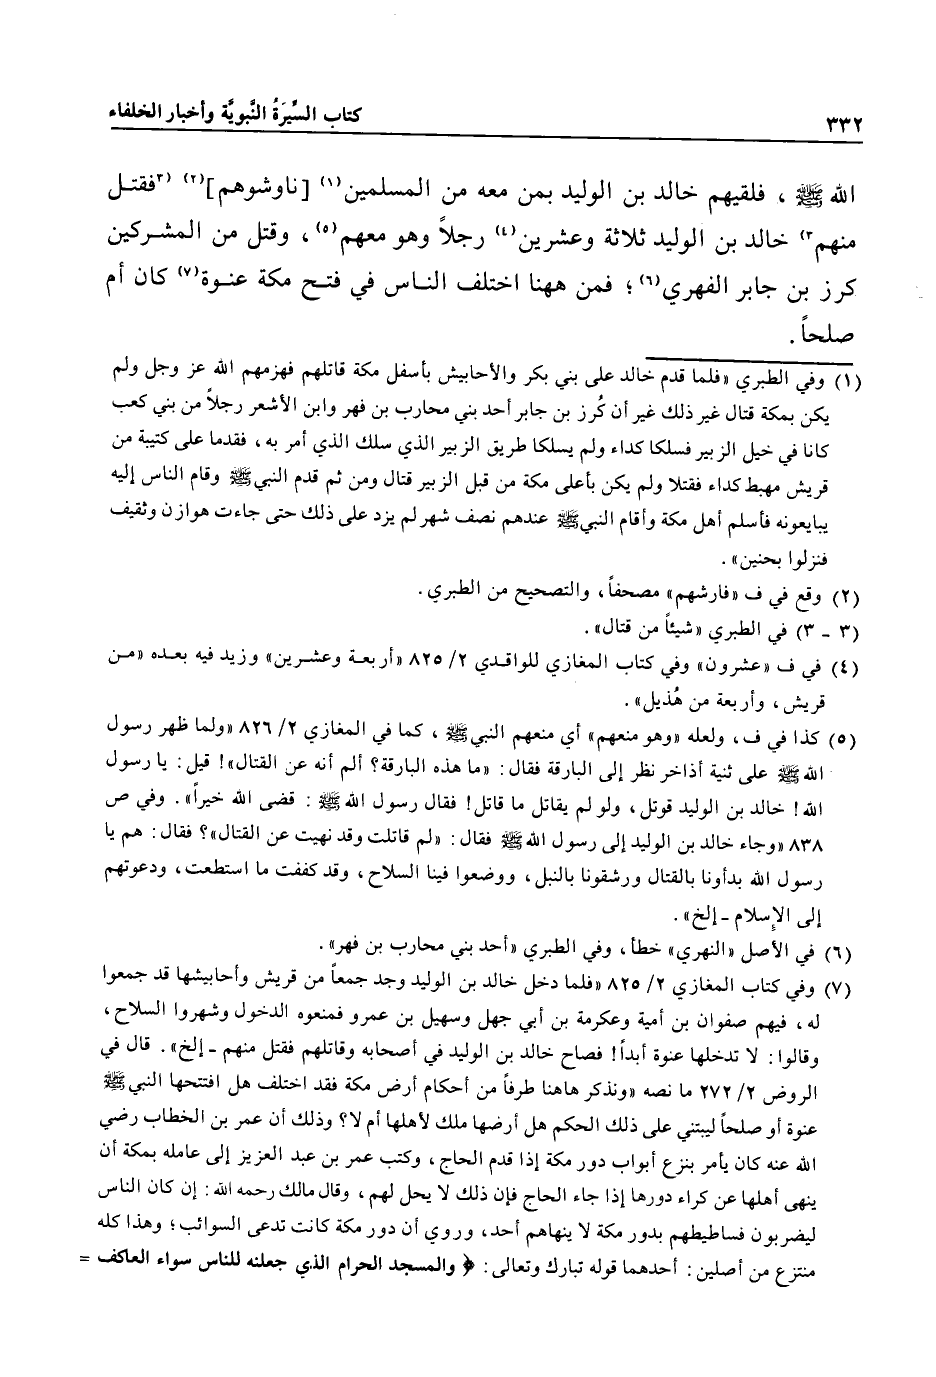 ٣٣٢ كتاب السِّيرَةُ النَّبويَّة وأخبار الخلفاء
الله ﷺ ، فلقيهم خالد بن الوليد بمن معه من المسلمين(١) [ناوشوهم](٢) (٣فقتل
منهم٣) خالد بن الوليد ثلاثة وعشرين(٤) رجلاً وهو معهم(٥)، وقتل من المشركين
كرز بن جابر الفهري(٦)؛ فمن ههنا اختلف الناس في فتح مكة عنوة(٧) كان أم
صلحاً.
(١) وفي الطبري «فلما قدم خالد على بني بكر والأحابيش بأسفل مكة قاتلهم فهزمهم الله عز وجل ولم
يكن بمكة قتال غير ذلك غير أن كُرز بن جابر أحد بني محارب بن فهر وابن الأشعر رجلاً من بني كعب
كانا في خيل الزبير فسلكا كداء ولم يسلكا طريق الزبير الذي سلك الذي أمر به، فقدما على كتيبة من
قريش مهبط كداء فقتلا ولم يكن بأعلى مكة من قبل الزبير قتال ومن ثم قدم النبي ﷺ وقام الناس إليه
يبايعونه فأسلم أهل مكة وأقام النبي ﷺ عندهم نصف شهر لم يزد على ذلك حتى جاءت هوازن وثقيف
فنزلوا بحنين».
(٢) وقع في ف «فارشهم» مصحفاً، والتصحيح من الطبري.
(٣ - ٣) في الطبري «شيئاً من قتال».
(٤) في ف «عشرون» وفي كتاب المغازي للواقدي ٢/ ٨٢٥ «أربعة وعشرين» وزيد فيه بعده «من
قريش، وأربعة من هُذيل».
(٥) كذا في ف، ولعله «وهو منعهم» أي منعهم النبي ﷺ ، كما في المغازي ٢/ ٨٢٦ «ولما ظهر رسول
الله ﷺ على ثنية أذاخر نظر إلى البارقة فقال: «ما هذه البارقة؟ ألم أنه عن القتال»! قيل: يا رسول
الله! خالد بن الوليد قوتل، ولو لم يقاتل ما قاتل! فقال رسول الله ﷺ : قضى الله خيراً». وفي ص
٨٣٨ «وجاء خالد بن الوليد إلى رسول الله ﷺ فقال: «لم قاتلت وقد نهيت عن القتال»؟ فقال: هم يا
رسول الله بدأونا بالقتال ورشقونا بالنبل، ووضعوا فينا السلاح، وقد كففت ما استطعت، ودعوتهم
إلى الإسلام - إلخ».
(٦) في الأصل «النهري» خطأ، وفي الطبري «أحد بني محارب بن فهر».
(٧) وفي كتاب المغازي ٢/ ٨٢٥ «فلما دخل خالد بن الوليد وجد جمعاً من قريش وأحابيشها قد جمعوا
له، فيهم صفوان بن أمية وعكرمة بن أبي جهل وسهيل بن عمرو فمنعوه الدخول وشهروا السلاح،
وقالوا: لا تدخلها عنوة أبداً! فصاح خالد بن الوليد في أصحابه وقاتلهم فقتل منهم - إلخ». قال في
الروض ٢/ ٢٧٢ ما نصه «ونذكر هاهنا طرفاً من أحكام أرض مكة فقد اختلف هل افتتحها النبي ﷺ
عنوة أو صلحاً ليبتني على ذلك الحكم هل أرضها ملك لأهلها أم لا؟ وذلك أن عمر بن الخطاب رضي
الله عنه كان يأمر بنزع أبواب دور مكة إذا قدم الحاج، وكتب عمر بن عبد العزيز إلى عامله بمكة أن
ينهى أهلها عن كراء دورها إذا جاء الحاج فإن ذلك لا يحل لهم، وقال مالك رحمه الله: إن كان الناس
ليضربون فساطيطهم بدور مكة لا ينهاهم أحد، وروي أن دور مكة كانت تدعى السوائب؛ وهذا كله
منتزع من أصلين: أحدهما قوله تبارك وتعالى: ﴿ والمسجد الحرام الذي جعلنه للناس سواء العاكف =